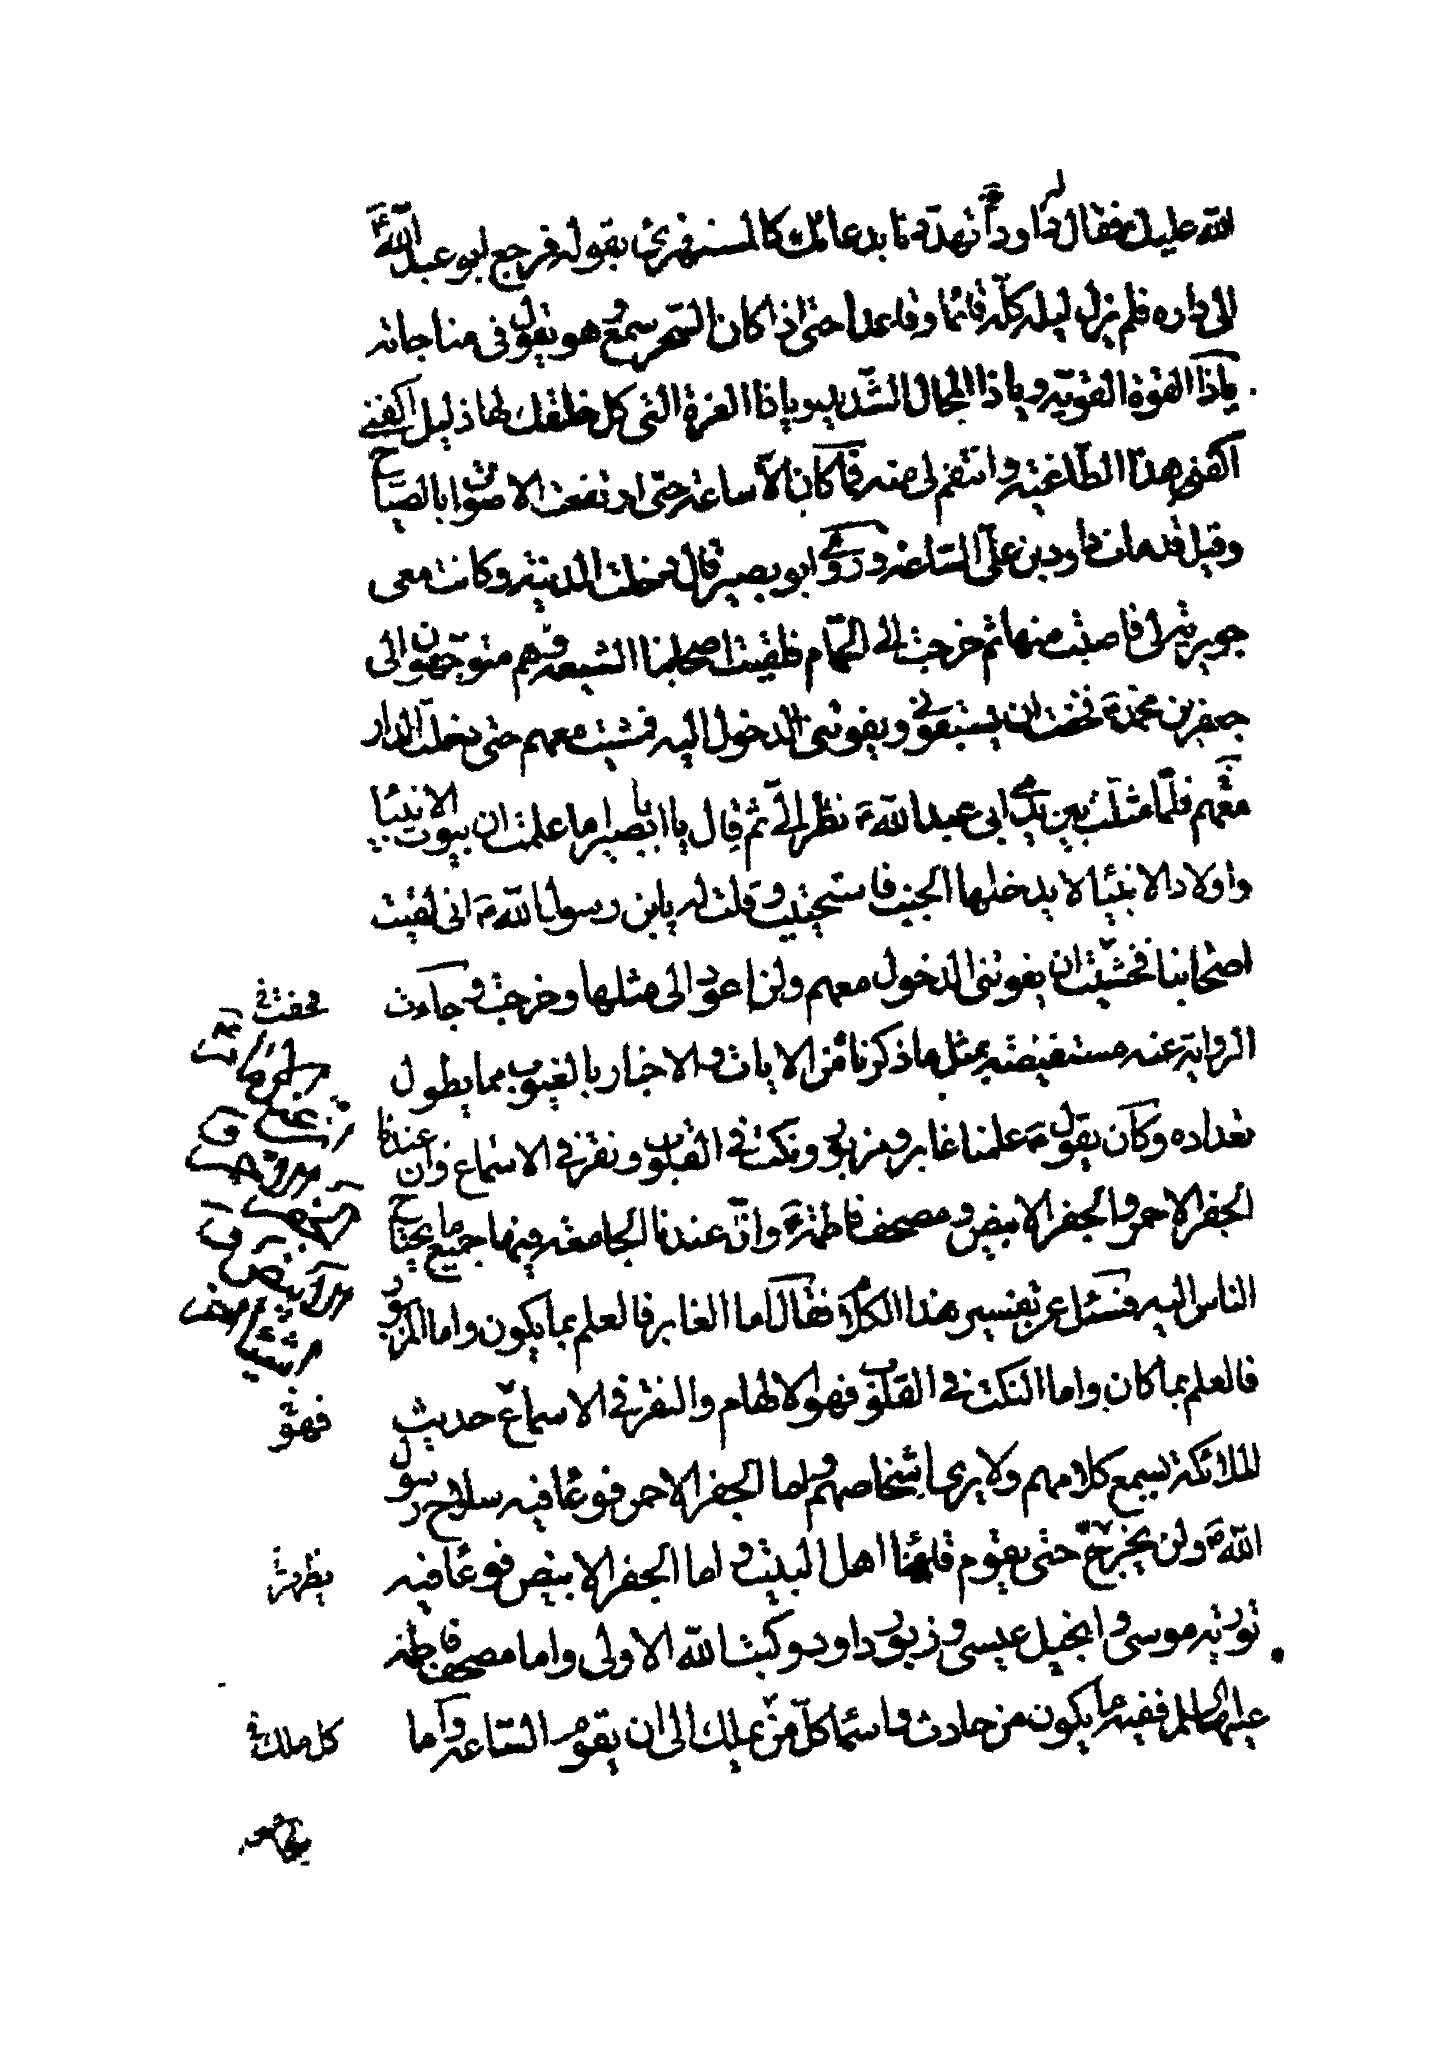 الله عليك فقال له داود أتهددنا بدعائك كالمستهزئ بقوله فرجع ابو عبد الله ع
الى داره فلم يزل ليله كله قائما وقاعدا حتى اذا كان السحر سمع وهو يقول فى مناجاته
ياذا القوة القويه وياذا المحال الشديد وياذا العزة التى كل خلقك لها ذليل اكفنى
اكفنى هذا الطاغيه وانتقم لى منه فما كان الا ساعة حتى ارتفعت الاصوات بالصياح
وقيل قد مات داود بن على الساعه وروى ابو بصير قال دخلت المدينه وكانت معى
جويرية لى فاصبت منها ثم خرجت الى الحمام فلقيت اصحابنا الشيعه وهم متوجهون الى
جعفر بن محمد ع فخفت ان يسبقونى ويفوتنى الدخول اليه فمشيت معهم حتى دخلت الدار
معهم فلما مثلت بين يدى ابى عبد الله ع نظر الى ثم قال يا ابا بصير اما علمت ان بيوت الانبيا
واولاد الانبيا لا يدخلها الجنب فاستحييت وقلت له يابن رسول الله ع انى لقيت
اصحابنا فخشيت ان يفوتنى الدخول معهم ولن اعود الى مثلها وخرجت وجاءت
الرواية عنه مستفيضه بمثل ما ذكرناه من الايات والاخبار بالغيوب مما يطول
تعداده وكان يقول ع علمنا غابر ومزبور ونكت فى القلوب ونقر فى الاسماع وان عندنا
الجفر الاحمر والجفر الابيض ومصحف فاطمة ع وان عندنا الجامعه فيها جميع ما يحتاج
الناس اليه فسئل عن تفسير هذا الكلام فقال اما الغابر فالعلم بما يكون واما المزبور
فالعلم بما كان واما النكت فى القلوب فهو الالهام والنقر فى الاسماع حديث
الملائكة يسمع كلامهم ولا يرى اشخاصهم واما الجفر الاحمر فوعا فيه سلاح رسول
الله ص ولن يخرج حتى يقوم قائمنا اهل البيت واما الجفر الابيض فوعا فيه
تورية موسى وانجيل عيسى وزبور داود وكتب الله الاولى واما مصحف فاطمه
عليها السلم ففيه ما يكون من حادث واسما كل من يملك الى ان يقوم الساعه واما
فهو
يظهر
كل ملك